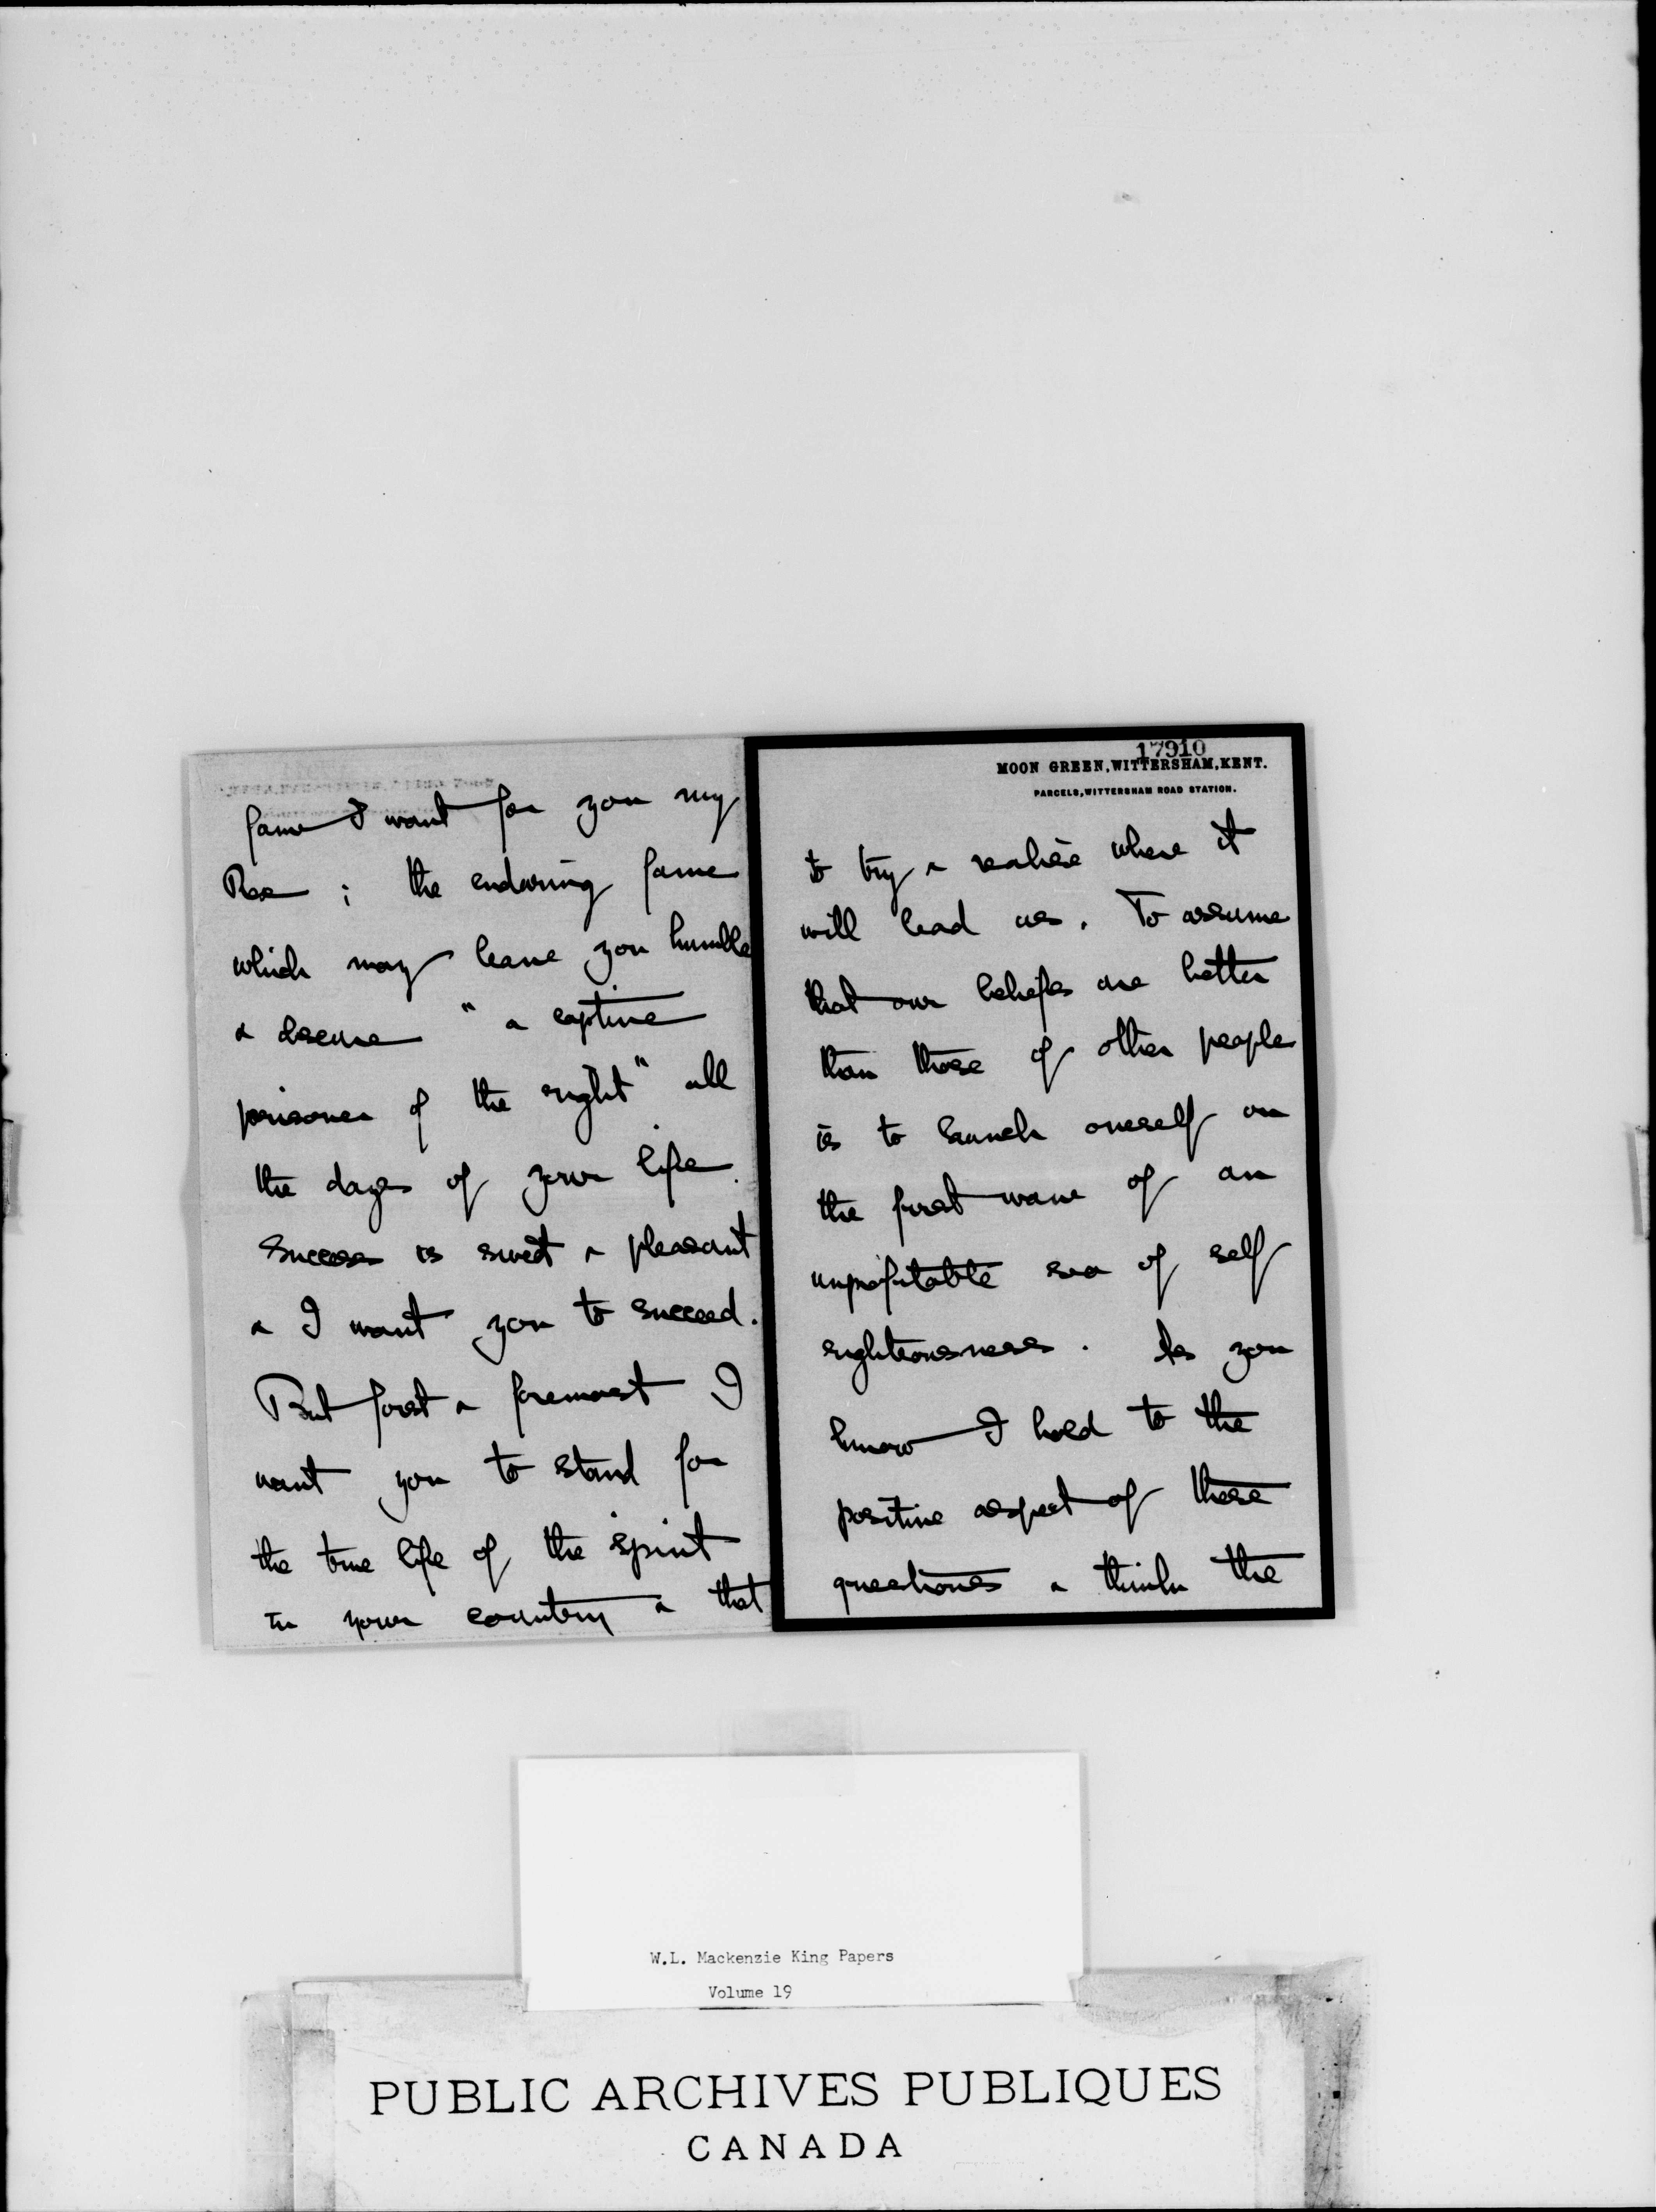 fame I want for you my
Rex ; the enduring fame
which may leave you humble
& obscure " a captive
prisoner of the right" all
the days of your life.
Success is sweet & pleasant
& I want you to succeed.
But first & foremost I
want you to stand for
the true life of the spirit
in your country & that
17910
MOON GREEN, WITTERSHAM, KENT.
PARCELS, WITTERSHAM ROAD STATION.
to try & realise where it
will lead us. To assume
that our beliefs are better
than those of other people
is to launch oneself on
the first wave of an
unprofitable sea of self
righteousness. As you
know I hold to the
positive aspect of these
questions & think the
W.L. Mackenzie King Papers
Volume 19
PUBLIC ARCHIVES PUBLIQUES
CANADA